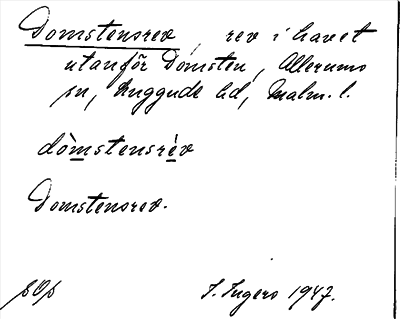 Domstensrev, rev i havet
utanför Domsten, Allerums
sn, Luggude hd, Malm. l.
dòmstensrèv
Domstensrev.
SOp J. Ingers 1947.